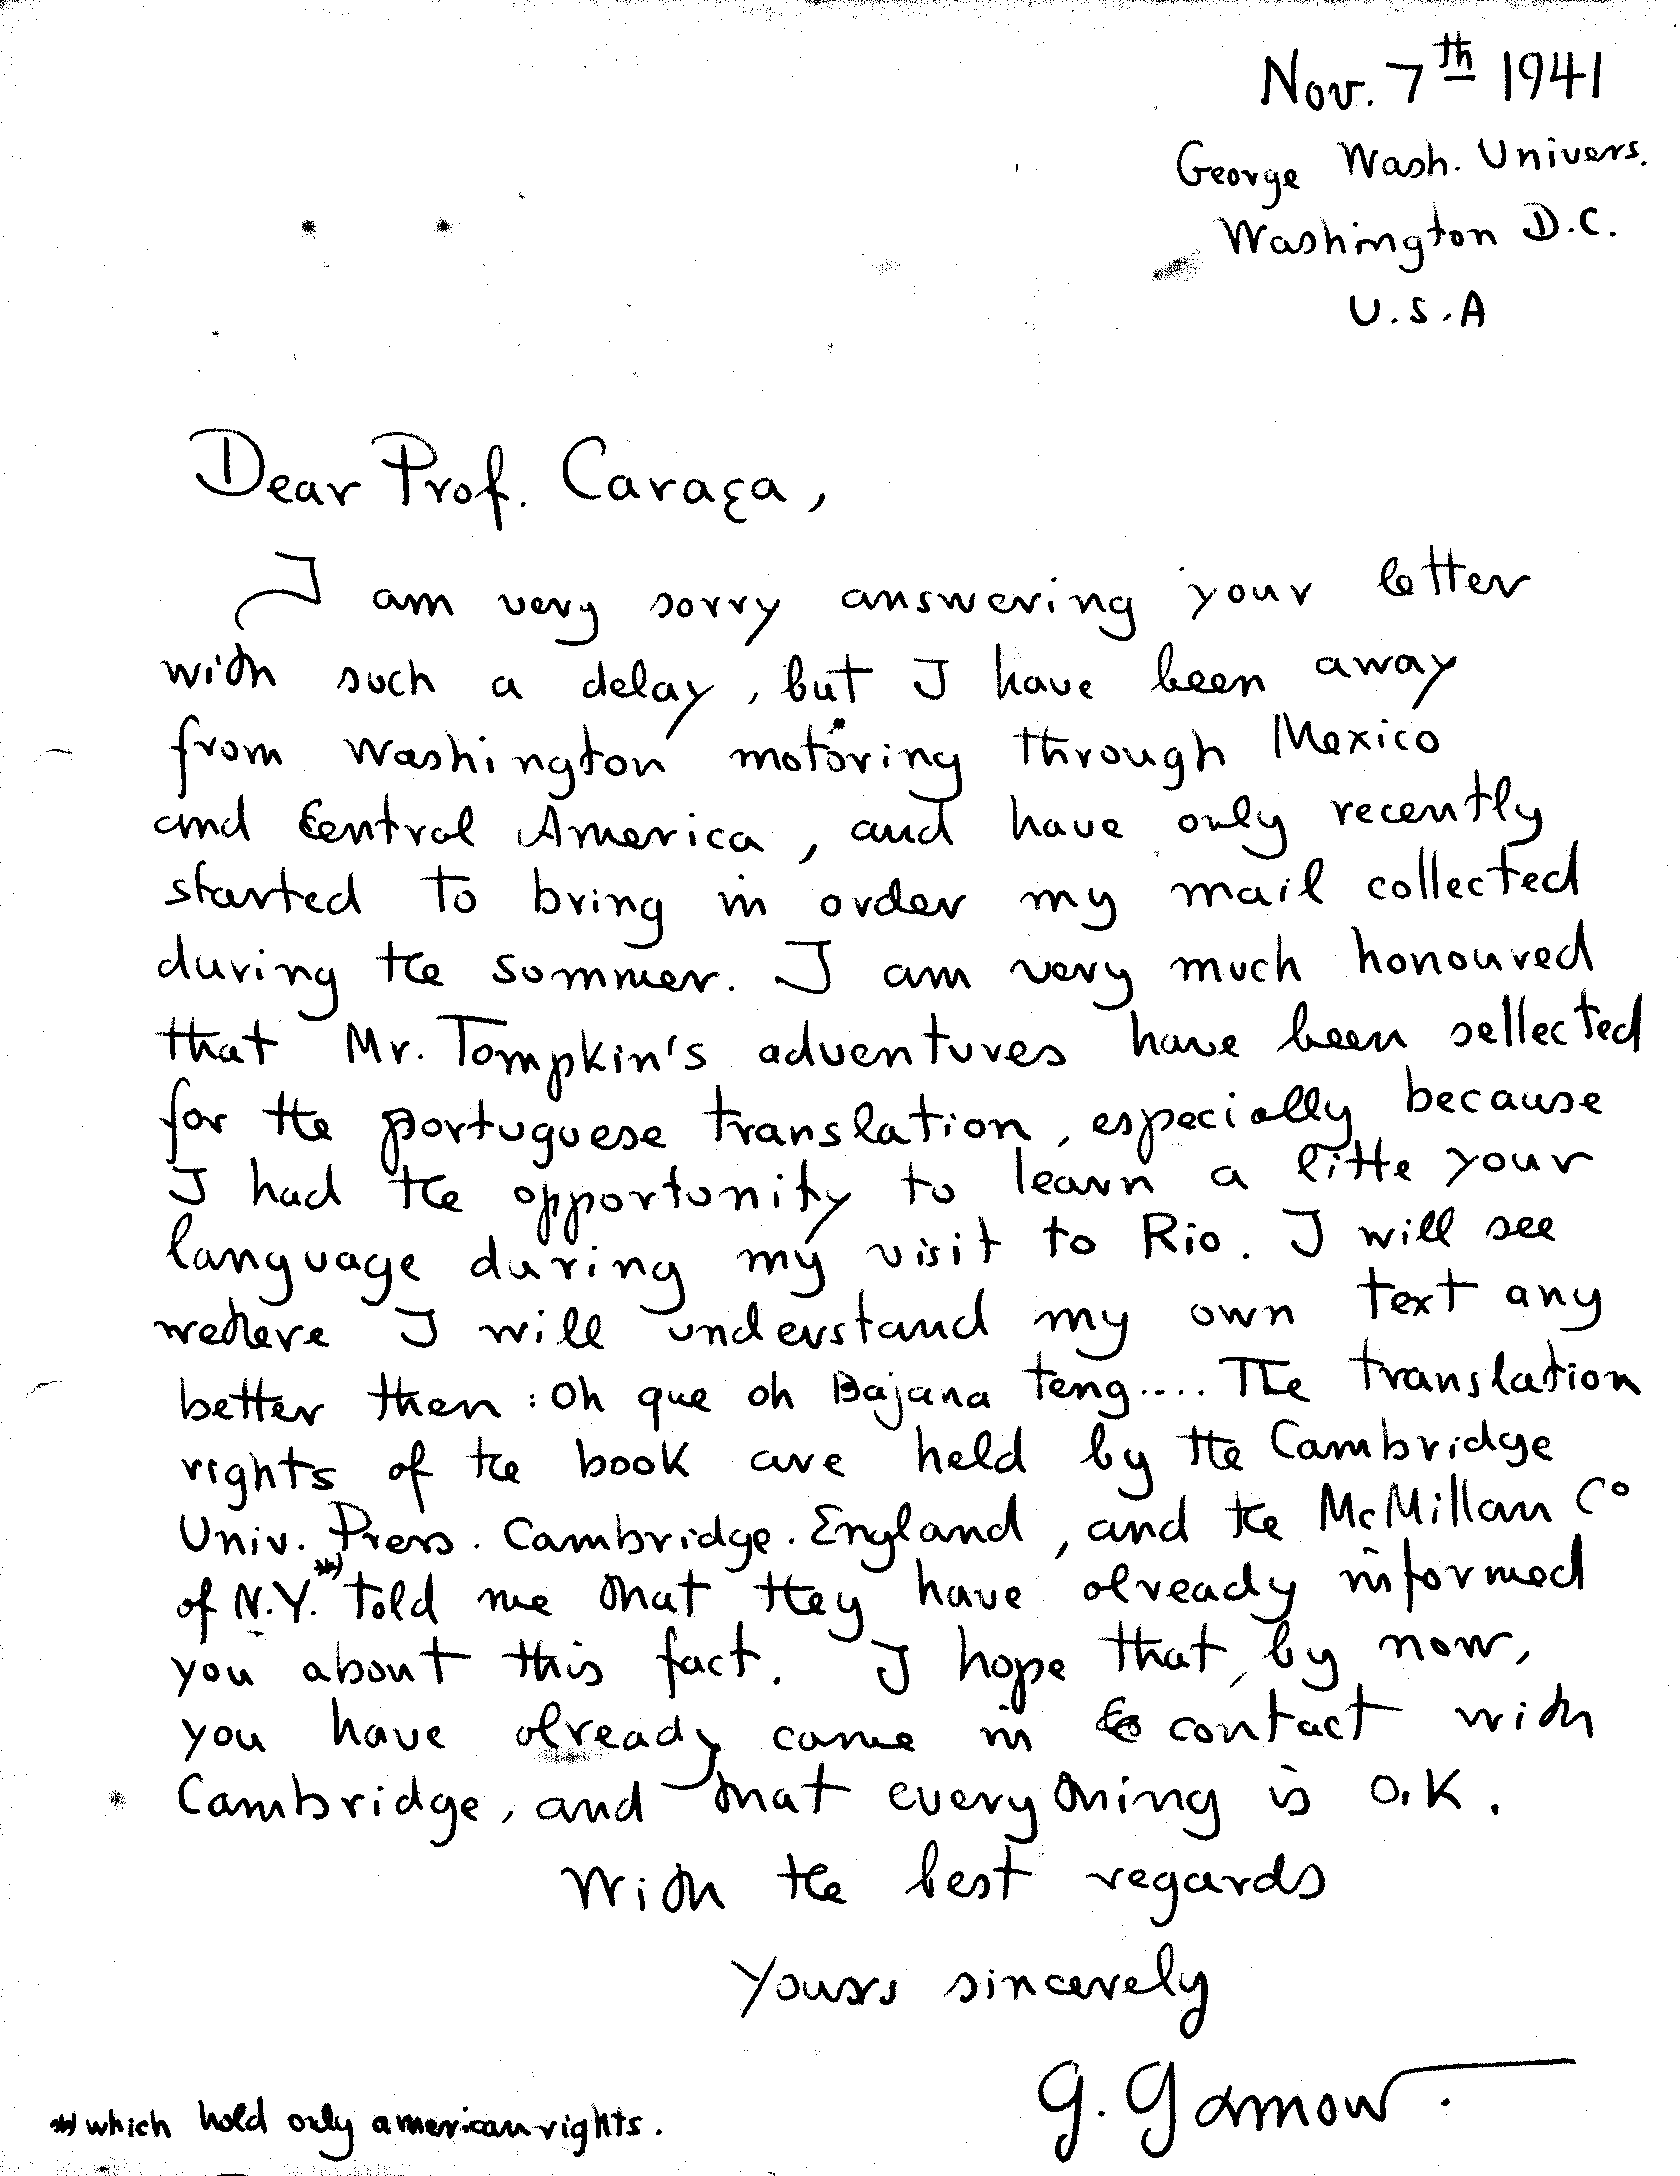 Nov. 7th 1941
George Wash. Univers.
Washington D.C.
U.S.A
Dear Prof. Caraça,
I am very sorry answering your letter
with such a delay, but I have been away
from Washington motoring through Mexico
and Central America, and have only recently
started to bring in order my mail collected
during the sommer. I am very much honoured
that Mr. Tompkin's adventures have been sellected
for the portuguese translation, especially because
I had the opportunity to learn a litte your
language during my visit to Rio. I will see
wethere I will understand my own text any
better then: Oh que oh Bajana teng.... The translation
rights of the book are held by the Cambridge
Univ. Press. Cambridge. England, and the McMillan Co
of N.Y.*) told me that they have already informed
you about this fact. I hope that, by now,
you have already came in contact with
Cambridge, and that everything is O.K.
With the best regards
Yours sincerely
G. Gamow.
*) which hold only american rights.